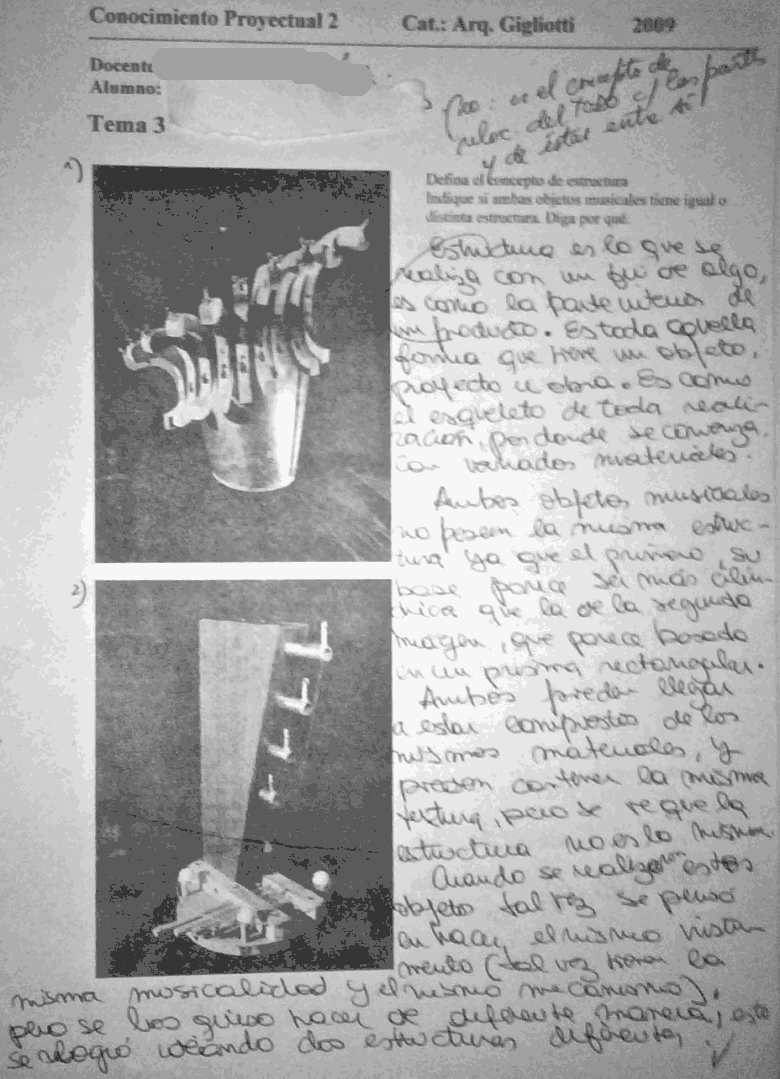 Conocimiento Proyectual 2 Cat.: Arq. Gigliotti 2009
Docente
Alumno:
Tema 3
No: es el concepto de
relac. del todo c/ las partes
y de éstas entre sí
1)
Defina el concepto de estructura
Indique si ambos objetos musicales tiene igual o
distinta estructura. Diga por qué.
Estructura es lo que se
realiza con un fin de algo,
es como la parte interna de
un producto. Es toda aquella
forma que tiene un objeto,
proyecto u obra. Es como
el esqueleto de toda reali-
zación, por donde se comienza.
con variados materiales.
Ambos objetos musicales
no poseen la misma estruc-
tura ya que el primero, su
base parece ser más cilín-
drica que la de la segunda
2)
imagen, que parece basado
en un prisma rectangular.
Ambos pueden llegar
a estar compuestos de los
mismos materiales, y
pueden contener la misma
textura, pero se ve que la
estructura no es lo mismo
Cuando se realizaron estos
objeto tal vez se pensó
en hacer el mismo instru-
mento (tal vez tienen la
misma musicalidad y el mismo mecanismo),
pero se los quiso hacer de diferente manera, esto
se logró ideando dos estructuras diferentes.